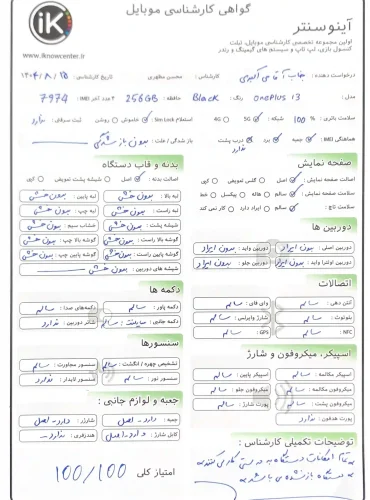 گواهی کارشناسی موبایل
آینوسنتر
اولین مجموعه تخصصی کارشناسی موبایل، تبلت
کنسول بازی، لپ تاپ و سیستم های گیمینگ و رندر
iK
www.iknowcenter.ir
درخواست دهنده : جناب آقای اکبری کارشناس : محسن مظهری تاریخ کارشناسی : ۱۴۰۴/۸/۱۵
مدل : OnePlus 13 رنگ : Black حافظه : 256GB ۴ عدد آخر IMEI : 7974
سلامت باتری : 100 % شبکه : 5G 4G استعلام Sim Lock : خاموش روشن ثبت سرقتی : ندارد
هماهنگی IMEI : جعبه برد درب پشت ندارد باز شدگی / علت : بدون بازشدگی
صفحه نمایش
اصالت صفحه نمایش : اصل گلس تعویض کپی
سلامت صفحه نمایش : سالم هاله پیکسل خط
سلامت تاچ : سالم ایراد دارد کار نمی کند
دوربین ها
دوربین اصلی : بدون ایراد دوربین واید : بدون ایراد
دوربین اولترا واید : بدون ایراد دوربین جلو : بدون ایراد
اتصالات
آنتن دهی : سالم وای فای : سالم
بلوتوث : سالم شارژ وایرلس : سالم
NFC : سالم GPS : سالم
اسپیکر، میکروفون و شارژ
اسپیکر مکالمه : سالم اسپیکر پایین : سالم
میکروفون مکالمه : سالم میکروفون جلو : سالم
میکروفون پشت : سالم پورت شارژ : سالم
پورت هدفون : ندارد
بدنه و قاب دستگاه
اصالت بدنه : اصل شیشه پشت تعویض کپی
لبه بالا : بدون خش لبه پایین : بدون خش
لبه راست : بدون خش لبه چپ : بدون خش
شیشه پشت : بدون خش خشاب سیم : بدون خش
گوشه بالا راست : بدون خش گوشه بالا چپ : بدون خش
گوشه پایین راست : بدون خش گوشه پایین چپ : بدون خش
شیشه های دوربین : بدون خش
دکمه ها
دکمه پاور : سالم دکمه‌های صدا : سالم
دکمه جانبی : سالم شاتر دوربین : ندارد
سنسورها
تشخیص چهره / انگشت : سالم سنسور مجاورت : سالم
سنسور نور : سالم سنسور لایدار : ندارد
جعبه و لوازم جانبی :
جعبه : دارد - اصل شارژر : دارد - اصل
کابل شارژ : دارد - اصل هندزفری : ندارد
توضیحات تکمیلی کارشناس :
تمام امکانات دستگاه به درستی کار می کنند
دستگاه باز نشده می باشد
امتیاز کلی 100/100